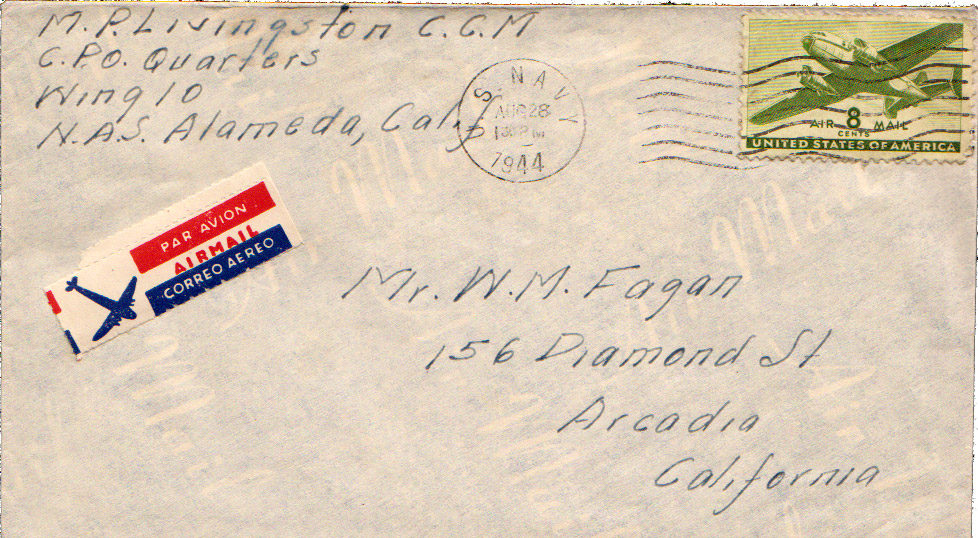 M.P. Livingston C.C.M
C.P.O. Quarters
Wing 10
N.A.S. Alameda, Cal.
U.S. NAVY
AUG 28
1944
AIR 8 MAIL
CENTS
UNITED STATES OF AMERICA
PAR AVION
AIRMAIL
CORREO AEREO
Mr. W.M. Fagan
156 Diamond St
Arcadia
California